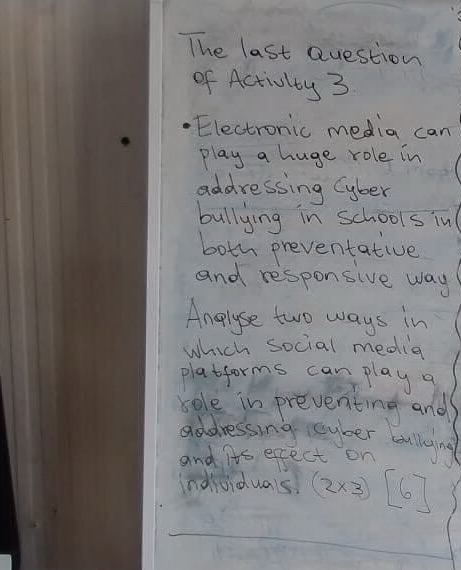 The last Question
of Activity 3
• Electronic media can
play a huge role in
addressing Cyber
bullying in schools in
both preventative
and responsive way
Analyse two ways in
which social media
platforms can play a
role in preventing and
addressing cyber bullying
and its effect on
individuals. (2x3) [6]